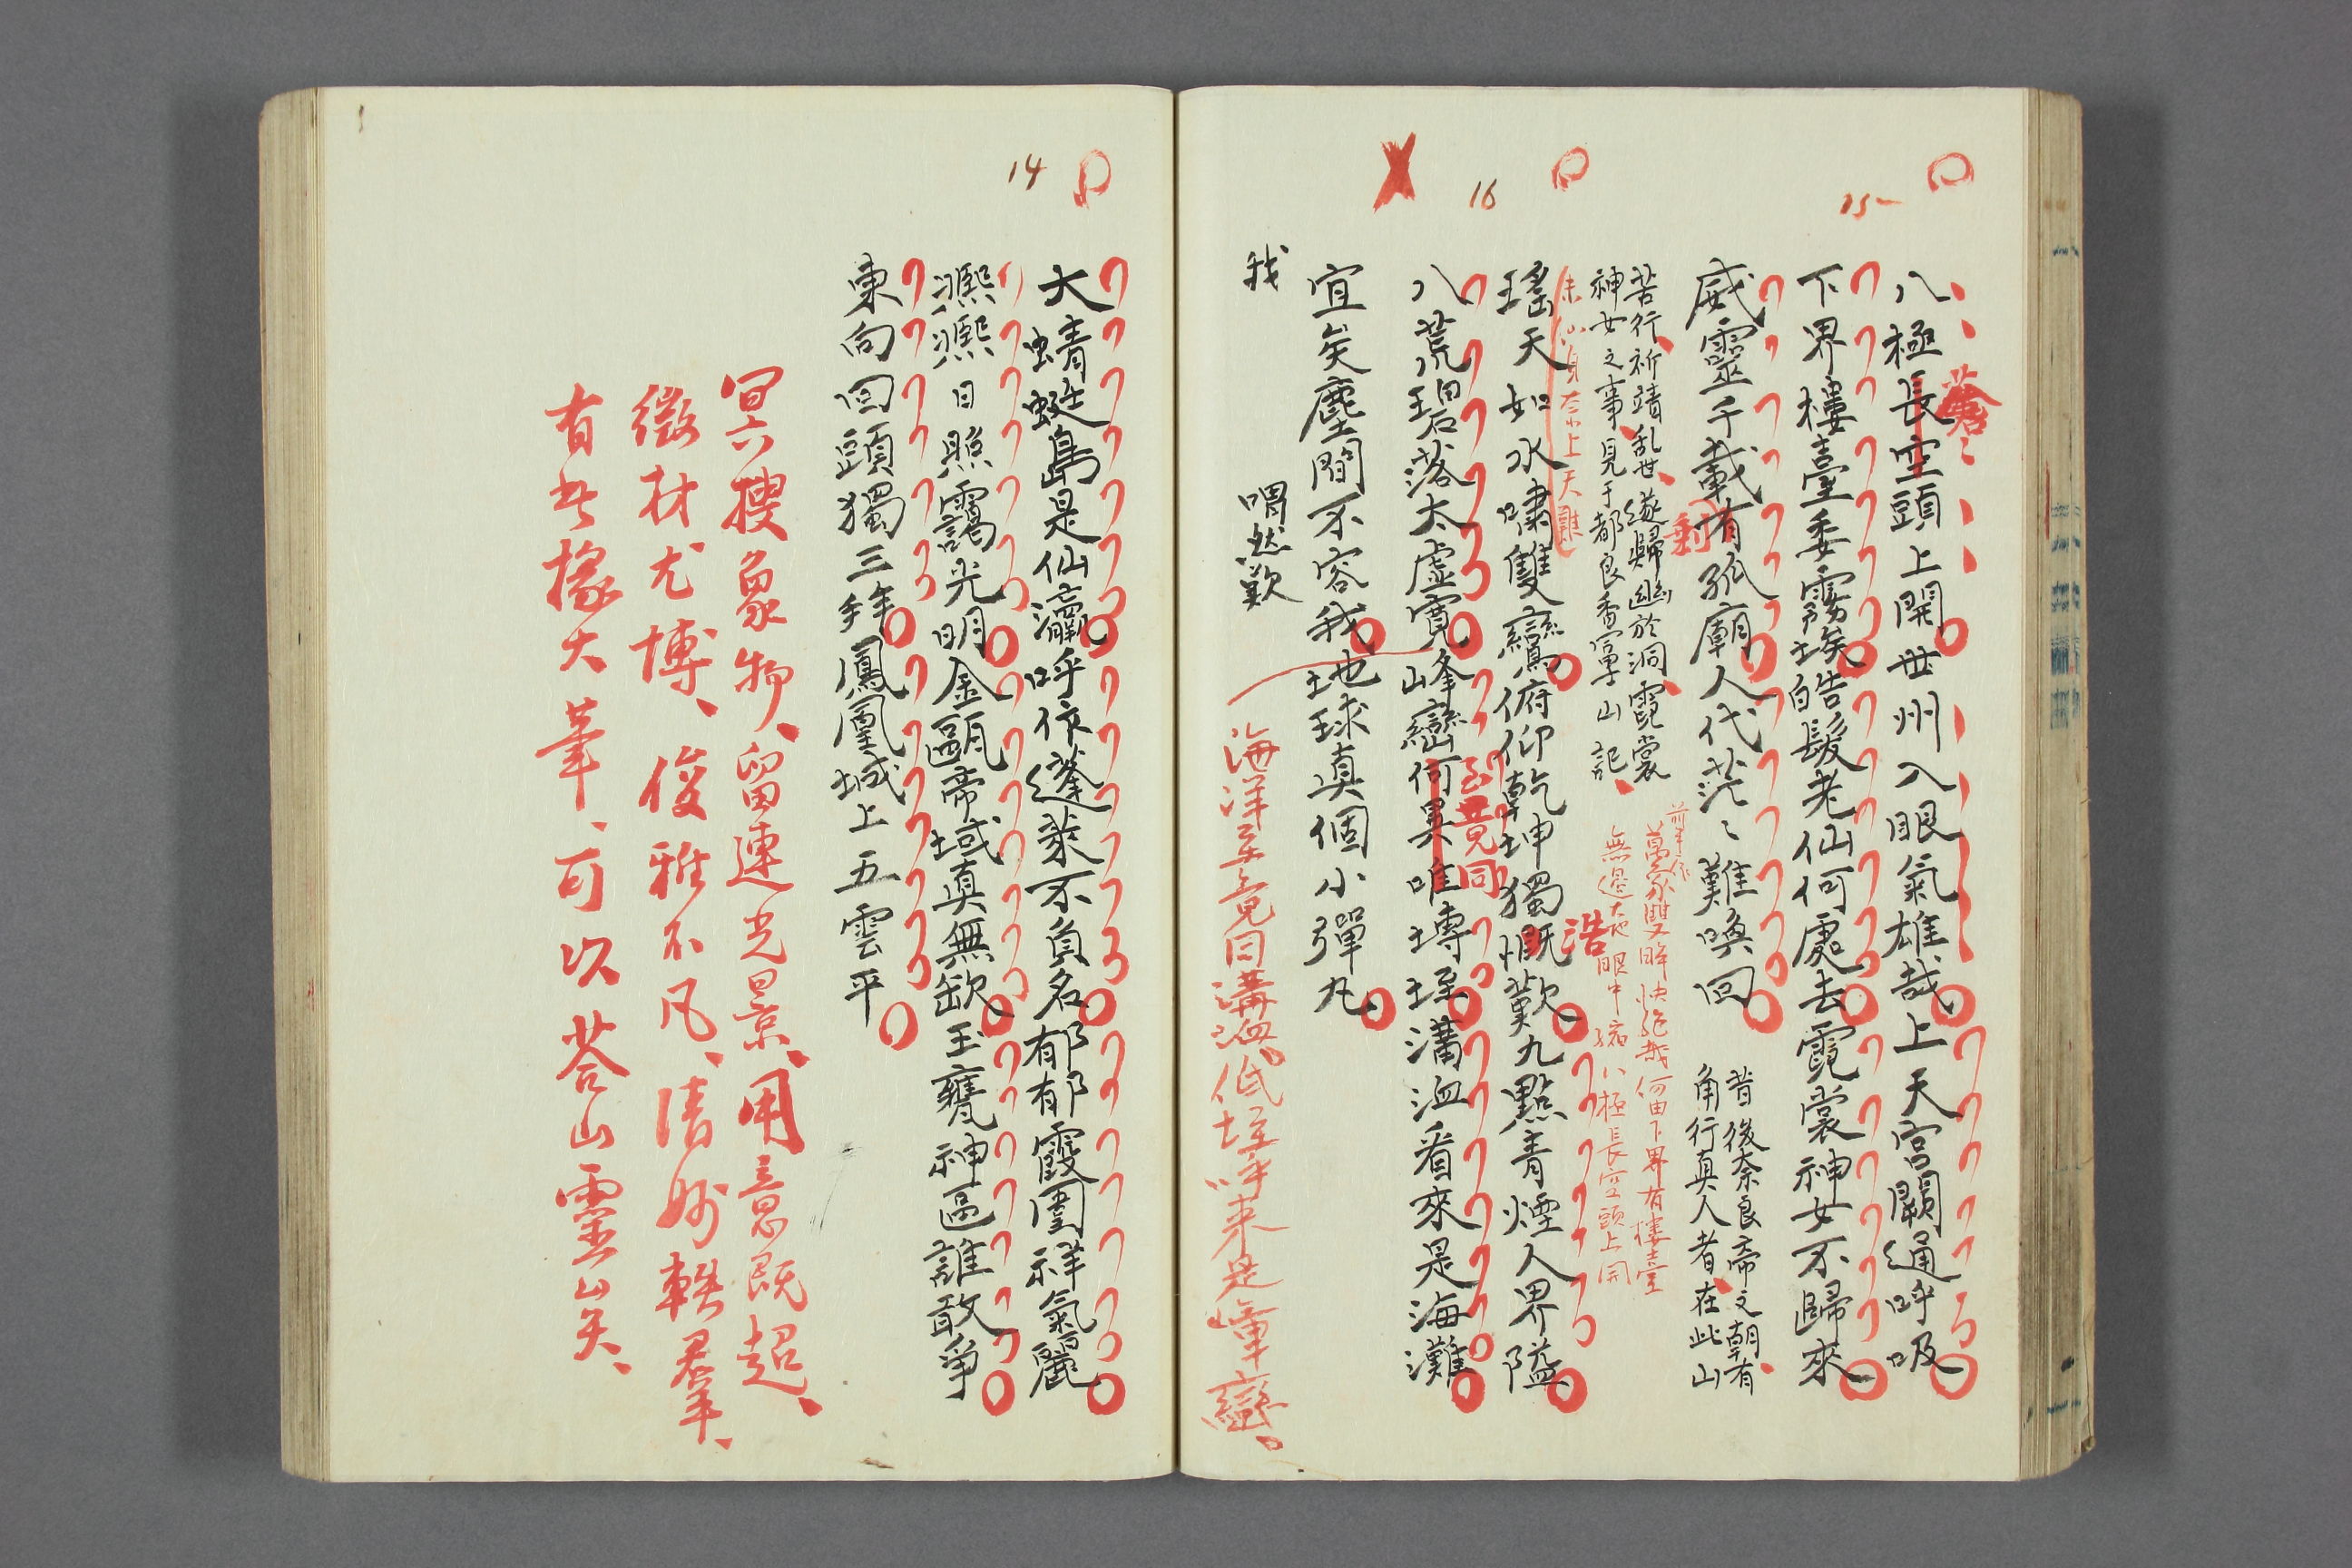 15
八極長空頭上開世州入眼氣雄哉上天宮闕通呼吸
蒼〻
下界樓臺委霧埃皓髮老仙何處去霓裳神女不歸來
威靈千載有孤廟人代茫〻難喚回
剩
昔後奈良帝之朝有
角行真人者在此山
苦行祈靖乱世遂歸幽於洞霓裳
神女之事見于都良香富山記
前半作
萬象雙眸快絕哉何由下界有樓臺
無邊大地眼中縮八極長空頭上開
16
瑤天如水嘯雙鸞俯仰乾坤獨慨歎九點青煙人界隘
浩
八荒碧落太虛寬峰巒何異唯塼垤溝洫看來是海灘
至竟同
宜矣塵間不容我地球真個小彈丸
海洋至竟同溝洫低垤看来是峰巒、
我
喟然歎
14
大蜻蜓島是仙瀛呼作蓬萊不負名郁郁霞圍祥氣麗
熈熈日照靄光明金甌帝域真無缺玉甕神區誰敢爭
東向回頭獨三拜鳳凰城上五雲平
冥搜象物、留連光景、用意既超、
徵材尤博、俊雅不凡、清妙軼羣、
有此椽大筆、可以荅山靈矣、